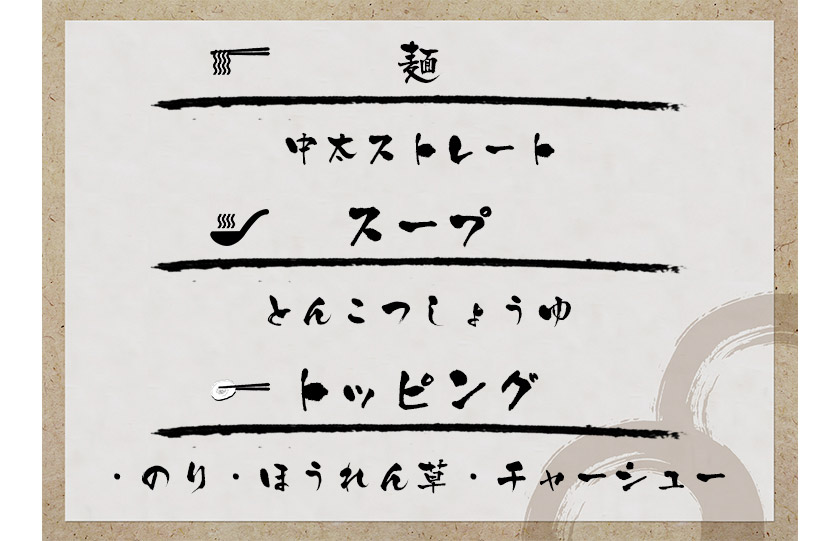 麺
中太ストレート
スープ
とんこつしょうゆ
トッピング
・のり・ほうれん草・チャーシュー